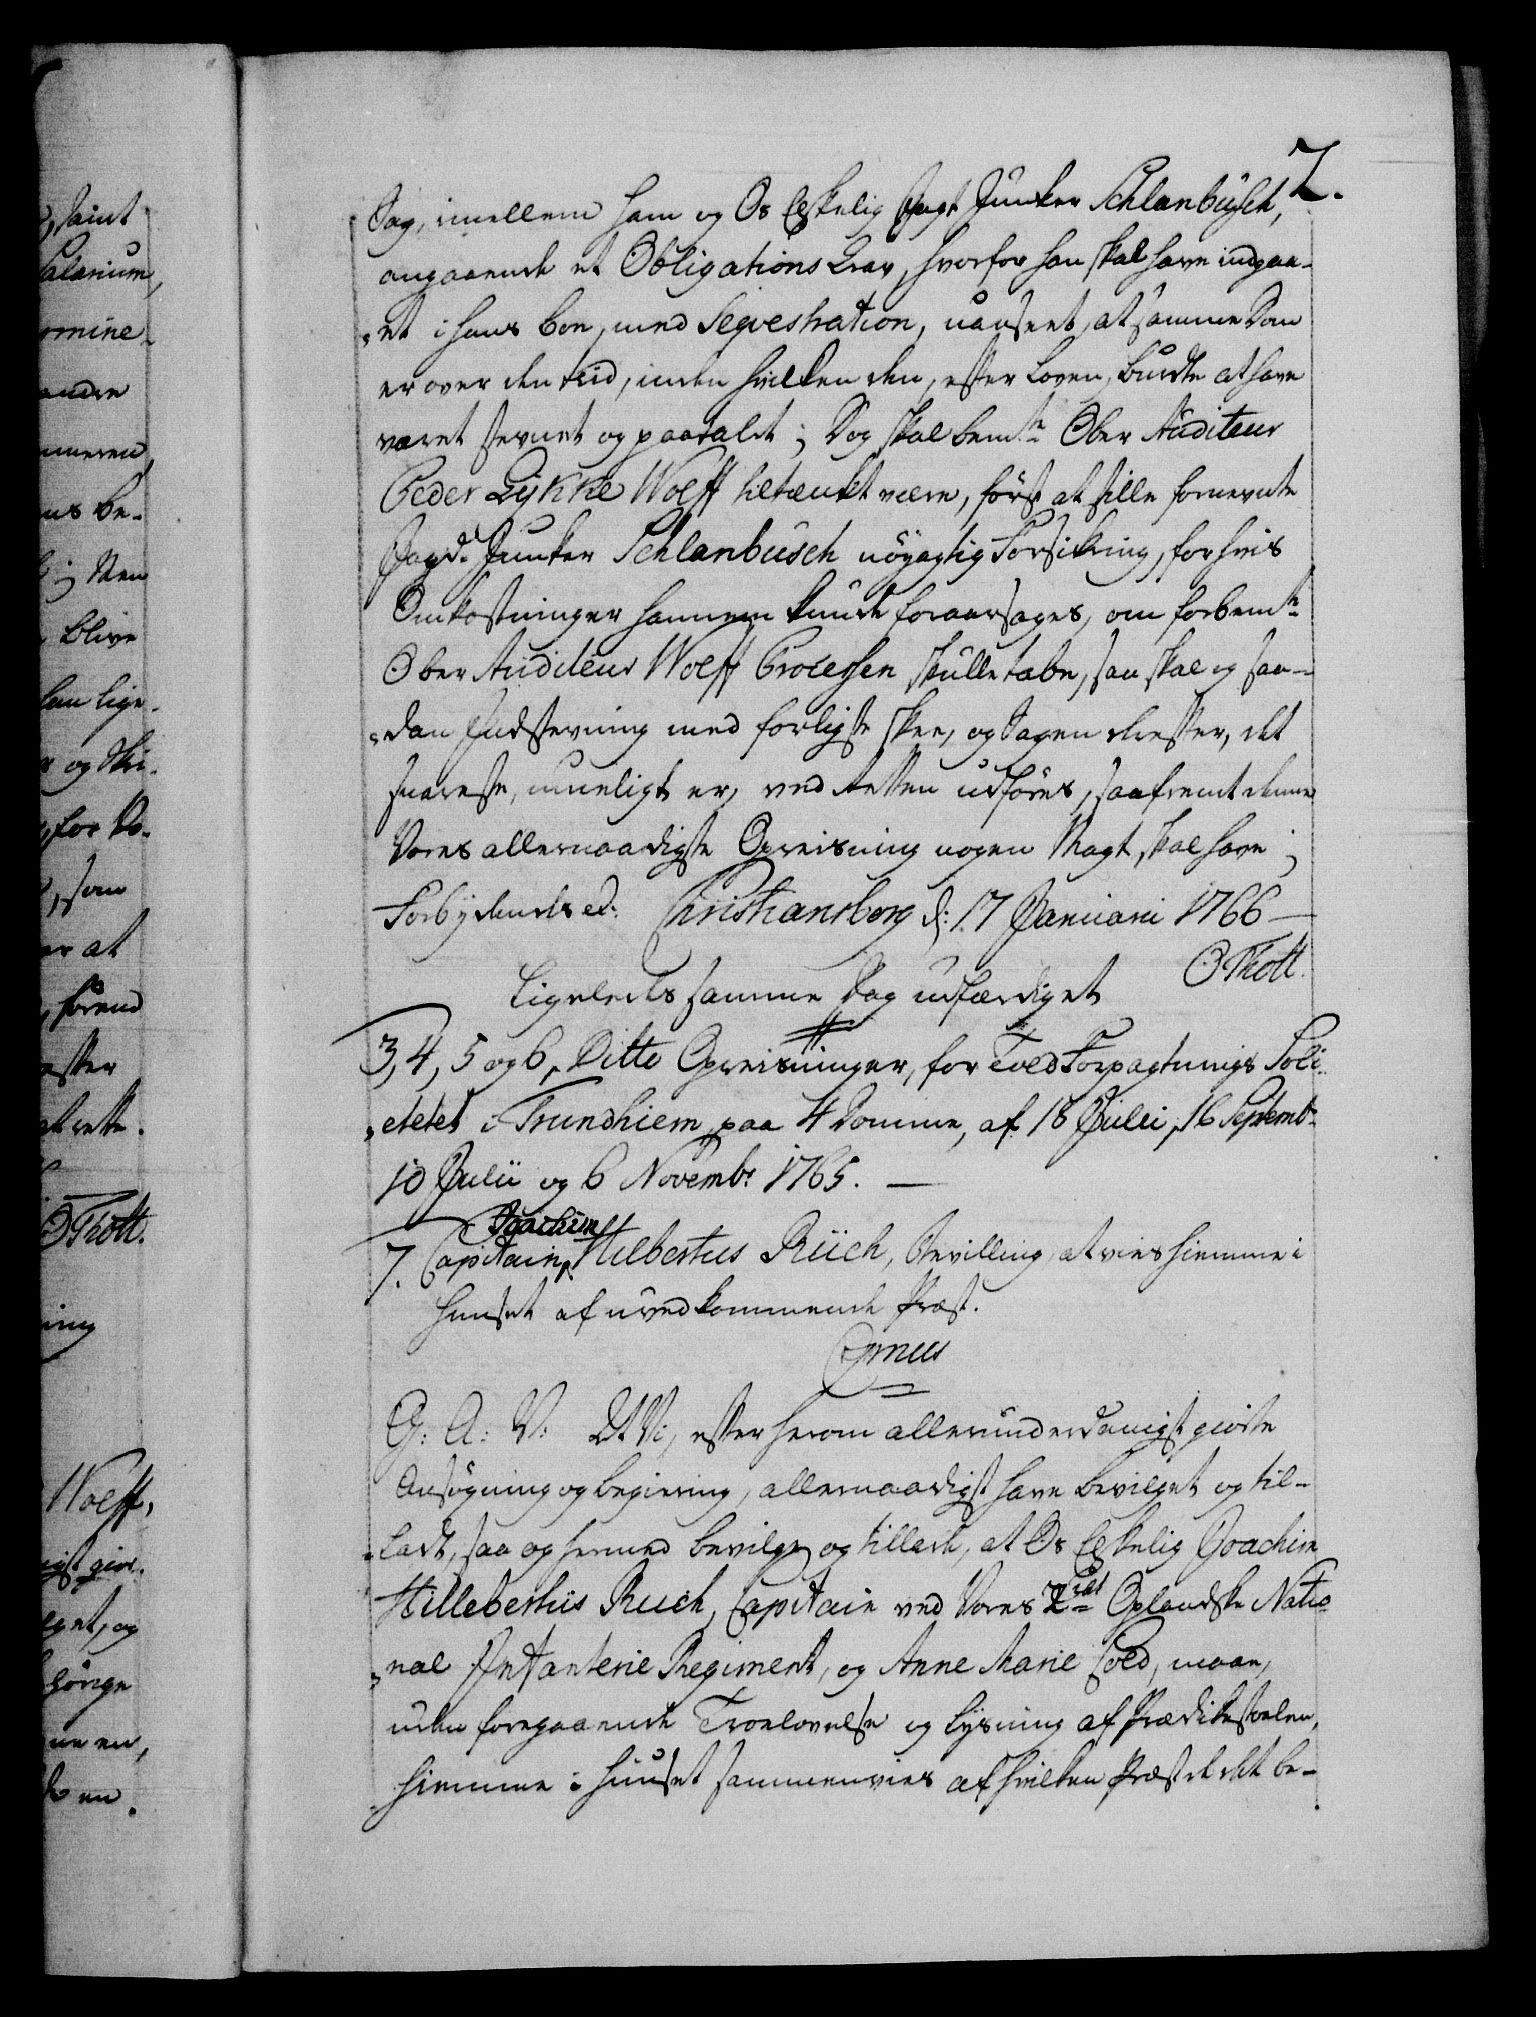 2.
Sag, imellem ham og Os Elskelig Jagt Junker Schlanbusch,
angaaende et Obligations Krav, hvorfor han skal have indgaa-
et i hans Boe, med Seqvestration, uanseet, at samme Dom
er over den tiid, inden hvilken den, efter Loven, burde at have
været stevnet og paatalet; Dog skal bemte Ober Auditeur
Peder Lykke Wolff tiltænkt være, först at stille fornevnte
Jagd Junker Schlanbusch nöyagtig Forsikring, for hvis
Omkostninger hannem kunde foraarsages, om forbemte
Ober Auditeur Wolff Processen skulle tabe, saa skal og saa-
dan Indstevning med forligste skee, og Sagen derefter, det
snareste, mueligt er, ved Retten udföres, saafremt denne
Vores allernaadigste Opreisning nogen Magt skal have;
Forbydendes ed: Christiansborg d: 17 Januarii 1766 —
O Thott.
Ligeledes samme Dag udfærdiget
3, 4, 5 og 6, Ditto Opreisninger, for Told Forpagtnings Soci-
etetet i Trundhiem paa 4 Domme, af 18 Julii, 16 Septembr
10 Julii og 6 Novembr 1765. —
Joachim
7. Capitain, Hilbertus Rüch, Bevilling, at vies hiemme i
Huuset af uvedkommende Præst.
G: A: V: At Vi, efter herom allerunderdanigst giorte
Ansögning og begiering, allernaadigst have bevilget og til-
ladt, saa og hermed bevilge og tillade, at Os Elskelig Joachim
Hillebertus Ruch, Capitain ved Vores 2det Oplandske Natio-
nal Infanterie Regiment, og Anne Marie Cold, maae,
uden foregaaende Troelovelse og Lysning af Prædikestoelen,
hiemme i Huuset sammenvies af hvilken Præst de det be-